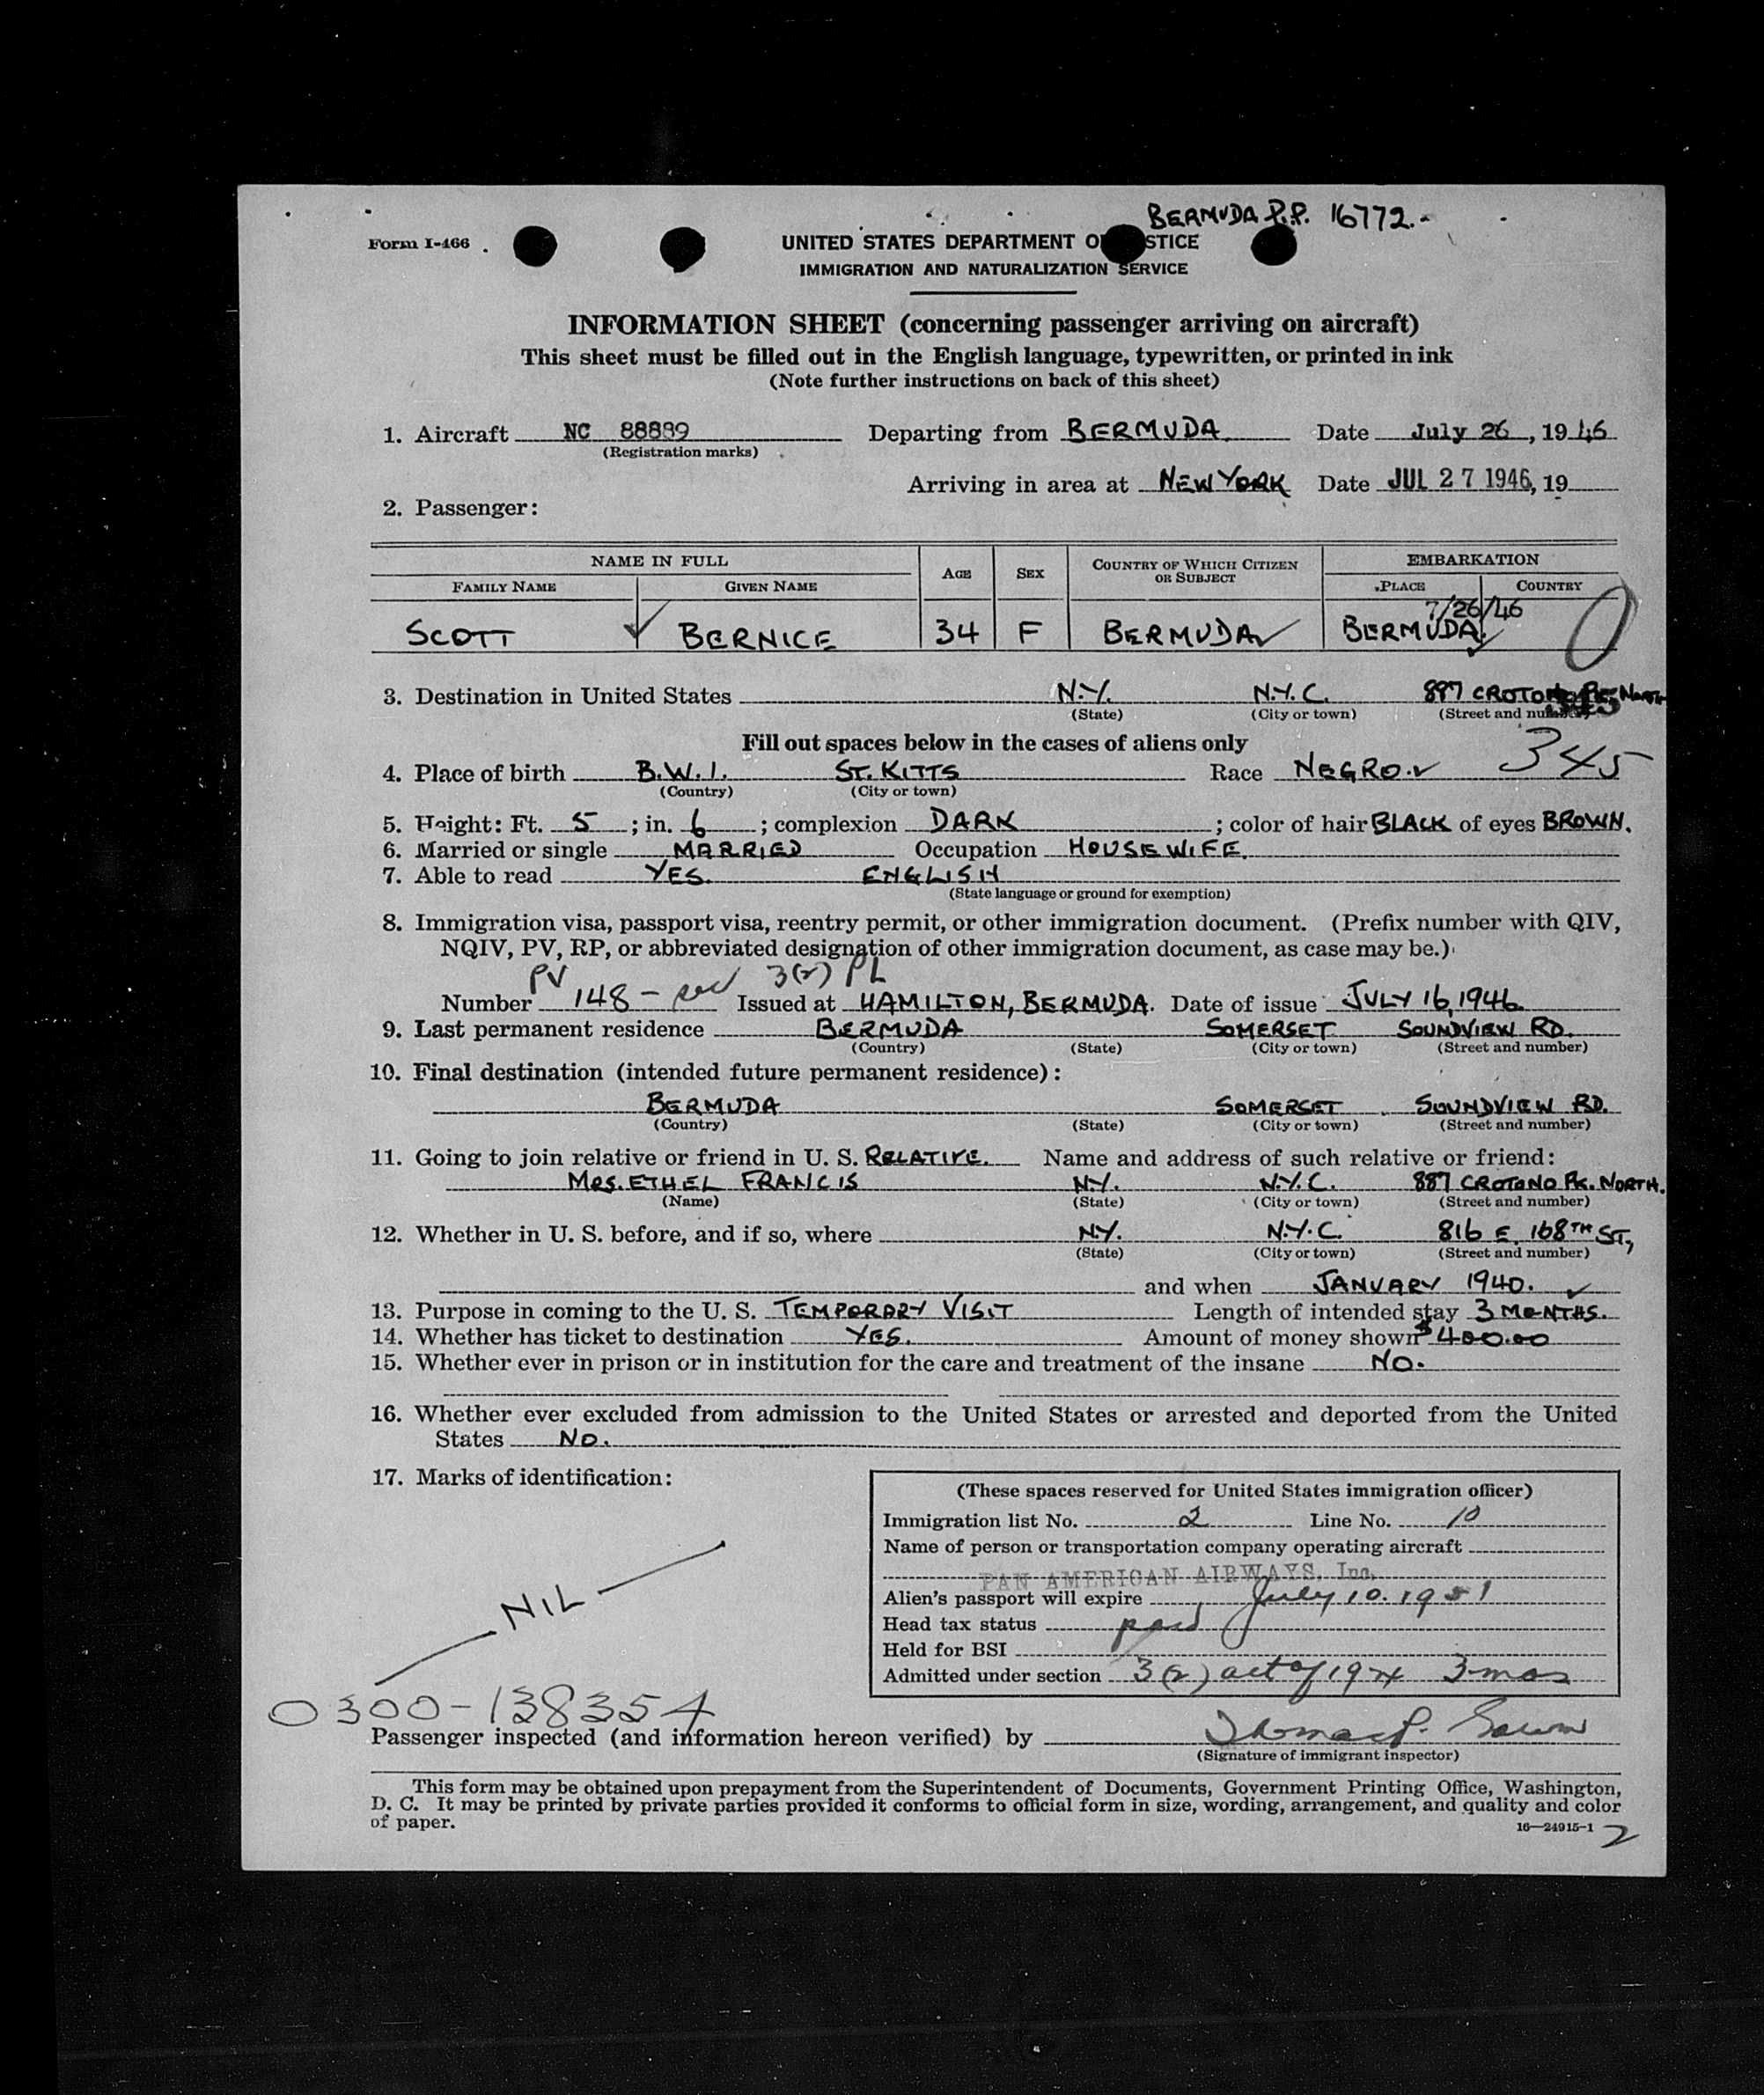 BERMUDA P.P. 16772.
Form I-466
UNITED STATES DEPARTMENT O STICE
IMMIGRATION AND NATURALIZATION SERVICE
INFORMATION SHEET (concerning passenger arriving on aircraft)
This sheet must be filled out in the English language, typewritten, or printed in ink
(Note further instructions on back of this sheet)
1. Aircraft NC 88889 Departing from BERMUDA Date July 26, 1946
(Registration marks)
Arriving in area at NEW YORK Date JUL 27 1946, 19
2. Passenger:
NAME IN FULL AGE SEX COUNTRY OF WHICH CITIZEN OR SUBJECT EMBARKATION
FAMILY NAME GIVEN NAME PLACE COUNTRY
7/26/46
SCOTT BERNICE 34 F BERMUDA BERMUDA. 0
3. Destination in United States N.Y. N.Y.C. 887 CROTONA PK. NORTH
(State) (City or town) (Street and number)
Fill out spaces below in the cases of aliens only
345
4. Place of birth B.W.I. ST. KITTS Race NEGRO.
(Country) (City or town)
5. Height: Ft. 5 ; in. 6 ; complexion DARK ; color of hair BLACK of eyes BROWN.
6. Married or single MARRIED Occupation HOUSEWIFE.
7. Able to read YES. ENGLISH
(State language or ground for exemption)
8. Immigration visa, passport visa, reentry permit, or other immigration document. (Prefix number with QIV,
NQIV, PV, RP, or abbreviated designation of other immigration document, as case may be.)
PV 3(2) PL
Number 148 - Issued at HAMILTON, BERMUDA. Date of issue JULY 16, 1946.
9. Last permanent residence BERMUDA SOMERSET SOUNDVIEW RD.
(Country) (State) (City or town) (Street and number)
10. Final destination (intended future permanent residence):
BERMUDA SOMERSET SOUNDVIEW RD.
(Country) (State) (City or town) (Street and number)
11. Going to join relative or friend in U. S. RELATIVE. Name and address of such relative or friend:
MRS. ETHEL FRANCIS N.Y. N.Y.C. 887 CROTONO PK. NORTH.
(Name) (State) (City or town) (Street and number)
12. Whether in U. S. before, and if so, where N.Y. N.Y.C. 816 E. 168TH ST.,
(State) (City or town) (Street and number)
and when JANUARY 1940.
13. Purpose in coming to the U. S. TEMPORARY VISIT Length of intended stay 3 MONTHS.
14. Whether has ticket to destination YES. Amount of money shown $400.00
15. Whether ever in prison or in institution for the care and treatment of the insane NO.
16. Whether ever excluded from admission to the United States or arrested and deported from the United
States NO.
17. Marks of identification:
NIL
(These spaces reserved for United States immigration officer)
Immigration list No. 2 Line No. 10
Name of person or transportation company operating aircraft
PAN AMERICAN AIRWAYS, Inc.
Alien's passport will expire July 10. 1951
Head tax status paid
Held for BSI
Admitted under section 3(2) act of 1924 3 mos
0300-138354
Passenger inspected (and information hereon verified) by
(Signature of immigrant inspector)
This form may be obtained upon prepayment from the Superintendent of Documents, Government Printing Office, Washington,
D. C. It may be printed by private parties provided it conforms to official form in size, wording, arrangement, and quality and color
of paper.
16—24915-1
2